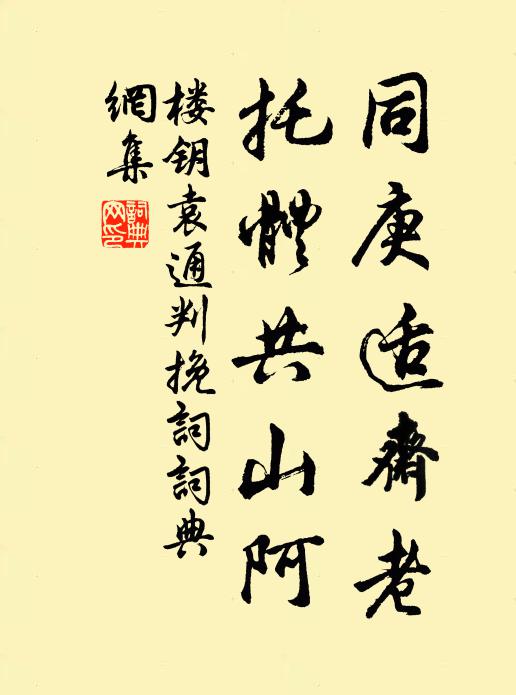 同庚适齋老
托體共山阿
楼钥袁通判挽詞詞典
網集
詞典
网印